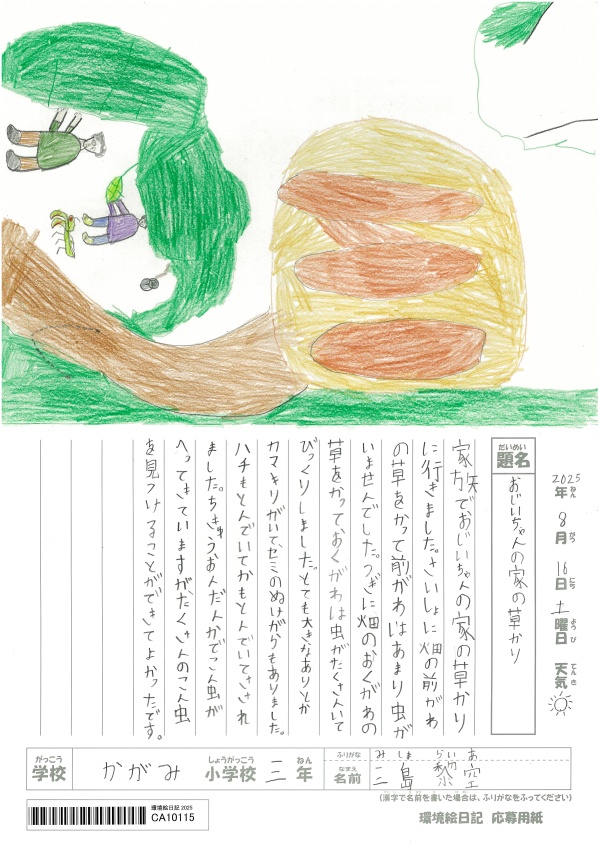 2025年 8月 16日 土曜日 天気
ねん がつ にち ようび てんき
だいめい
題名
おじいちゃんの家の草かり
家族でおじいちゃんの家の草かり
に行きました。さいしょに畑の前がわ
の草をかって前がわはあまり虫が
いませんでした。つぎに畑のおくがわの
草をかっておくがわは虫がたくさんいて
びっくりしました。とても大きなありとか
カマキリがいて、セミのぬけがらもありました。
ハチもとんでいてかもとんでいてさされ
ました。ちきゅうおんだんかでこん虫が
へってきていますがたくさんのこん虫
を見つけることができてよかったです。
がっこう
学校
かがみ
しょうがっこう
小学校
三
ねん
年
ふりがな
みしま らいあ
なまえ
名前
三島 黎空
(漢字で名前を書いた場合は、ふりがなをふってください)
環境絵日記 2025
CA10115
環境絵日記 応募用紙